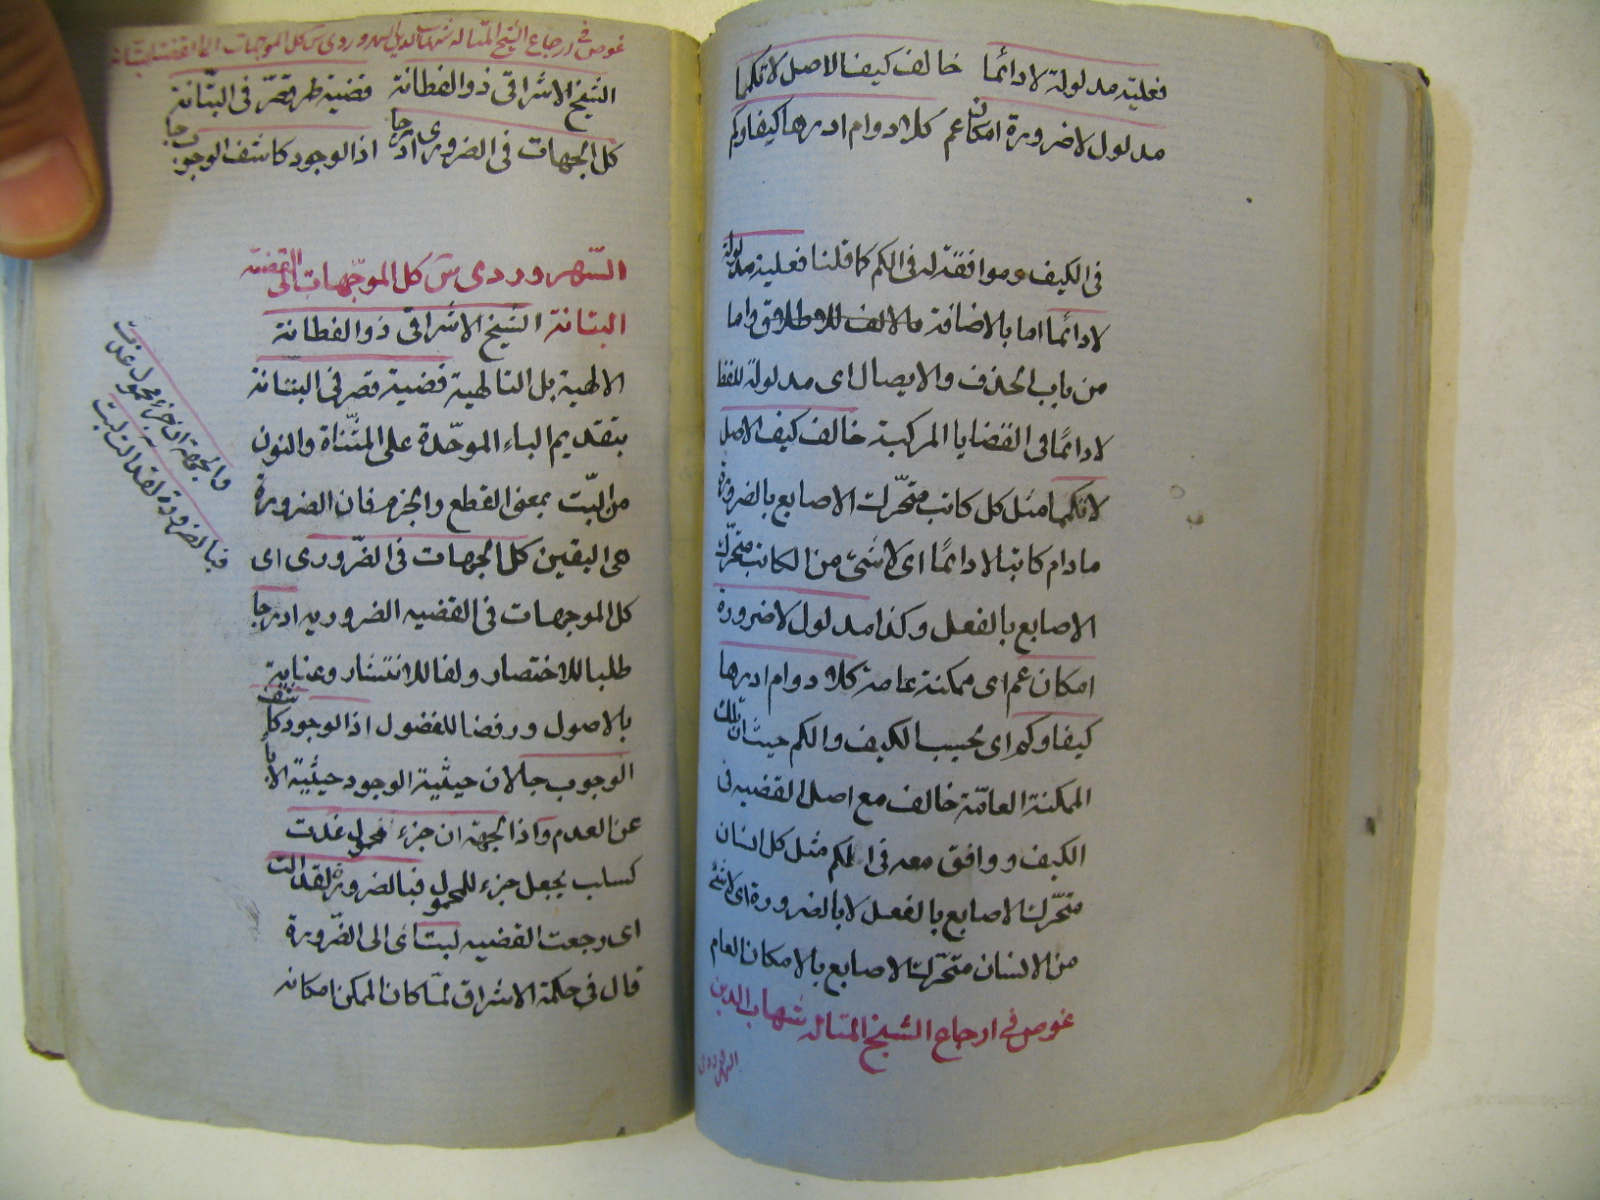 فعلية مدلولة لادائما خالف كيفا الاصل لا تكما
مدلول لاضرورة امكان عم كلادوام ادرها كيفا وكم
فى الكيف وموافقة له فى الكم كما قلنا فعلية مدلولة
لادائمًا اما بالاضافة واما
من باب الحذف والايصال اى مدلولة للفظ
لادائمًا فى القضايا المركبة خالف كيف الاصل
لا تكما مثل كل كاتب متحرك الاصابع بالضرورة
مادام كاتبا لادائمًا اى لاشئ من الكاتب متحرك
الاصابع بالفعل وكذا مدلول لاضرورة
امكان عم اى ممكنة عامة كلا دوام ادرها
كيفا وكم اى بحسب الكيف والكم حيث ان تلك
الممكنة العامّة خالف مع اصل القضيه فى
الكيف ووافق معه فى الكم مثل كل انسان
متحرك الاصابع بالفعل لا بالضرورة اى لاشئ
من الانسان متحرك الاصابع بالامكان العام
غوص فى ارجاع الشيخ المتاله شهاب الدين
السهروردى
غوص فى ارجاع الشيخ المتاله شهاب الدين السهروردى س كل الموجهات الى القضية البتانة
الشيخ الاشراقى ذو الفطانة قضية قصر فى البتانة
كل الجهات فى الضرورى ادرجا اذ الوجود كاشف الوجوب جا
السّهروردى سَ كل الموجّهات الى القضية
البتانة الشيخ الاشراقى ذو الفطانة
الالهية بل التالهية قضية قصر فى البتّانة
بتقديم الباء الموحّدة على المثنّاة والنون
من البّت بمعنى القطع والجزم فان الضرورة
هى اليقين كل الجهات فى الضّرورى اى
كل الموجهات فى القضيه الضروريه ادرجا
طلبا للاختصار ولفا للانتشار وعناية
بالاصول ورفضا للفضول اذ الوجود كاشف
الوجوب جا لان حيثية الوجود حيثية الابا
عن العدم واذا الجهة ان جزء محمول غدت
كسلب يجعل جزء للمحمول فبالضرورة لقد الت
اى رجعت القضيه لبت اى الى الضّرورة
قال فى حكمة الاشراق لمّا كان الممكن امكانه
والجهة ان جزء محمول غدت
فبالضرورة لقد الت لبت